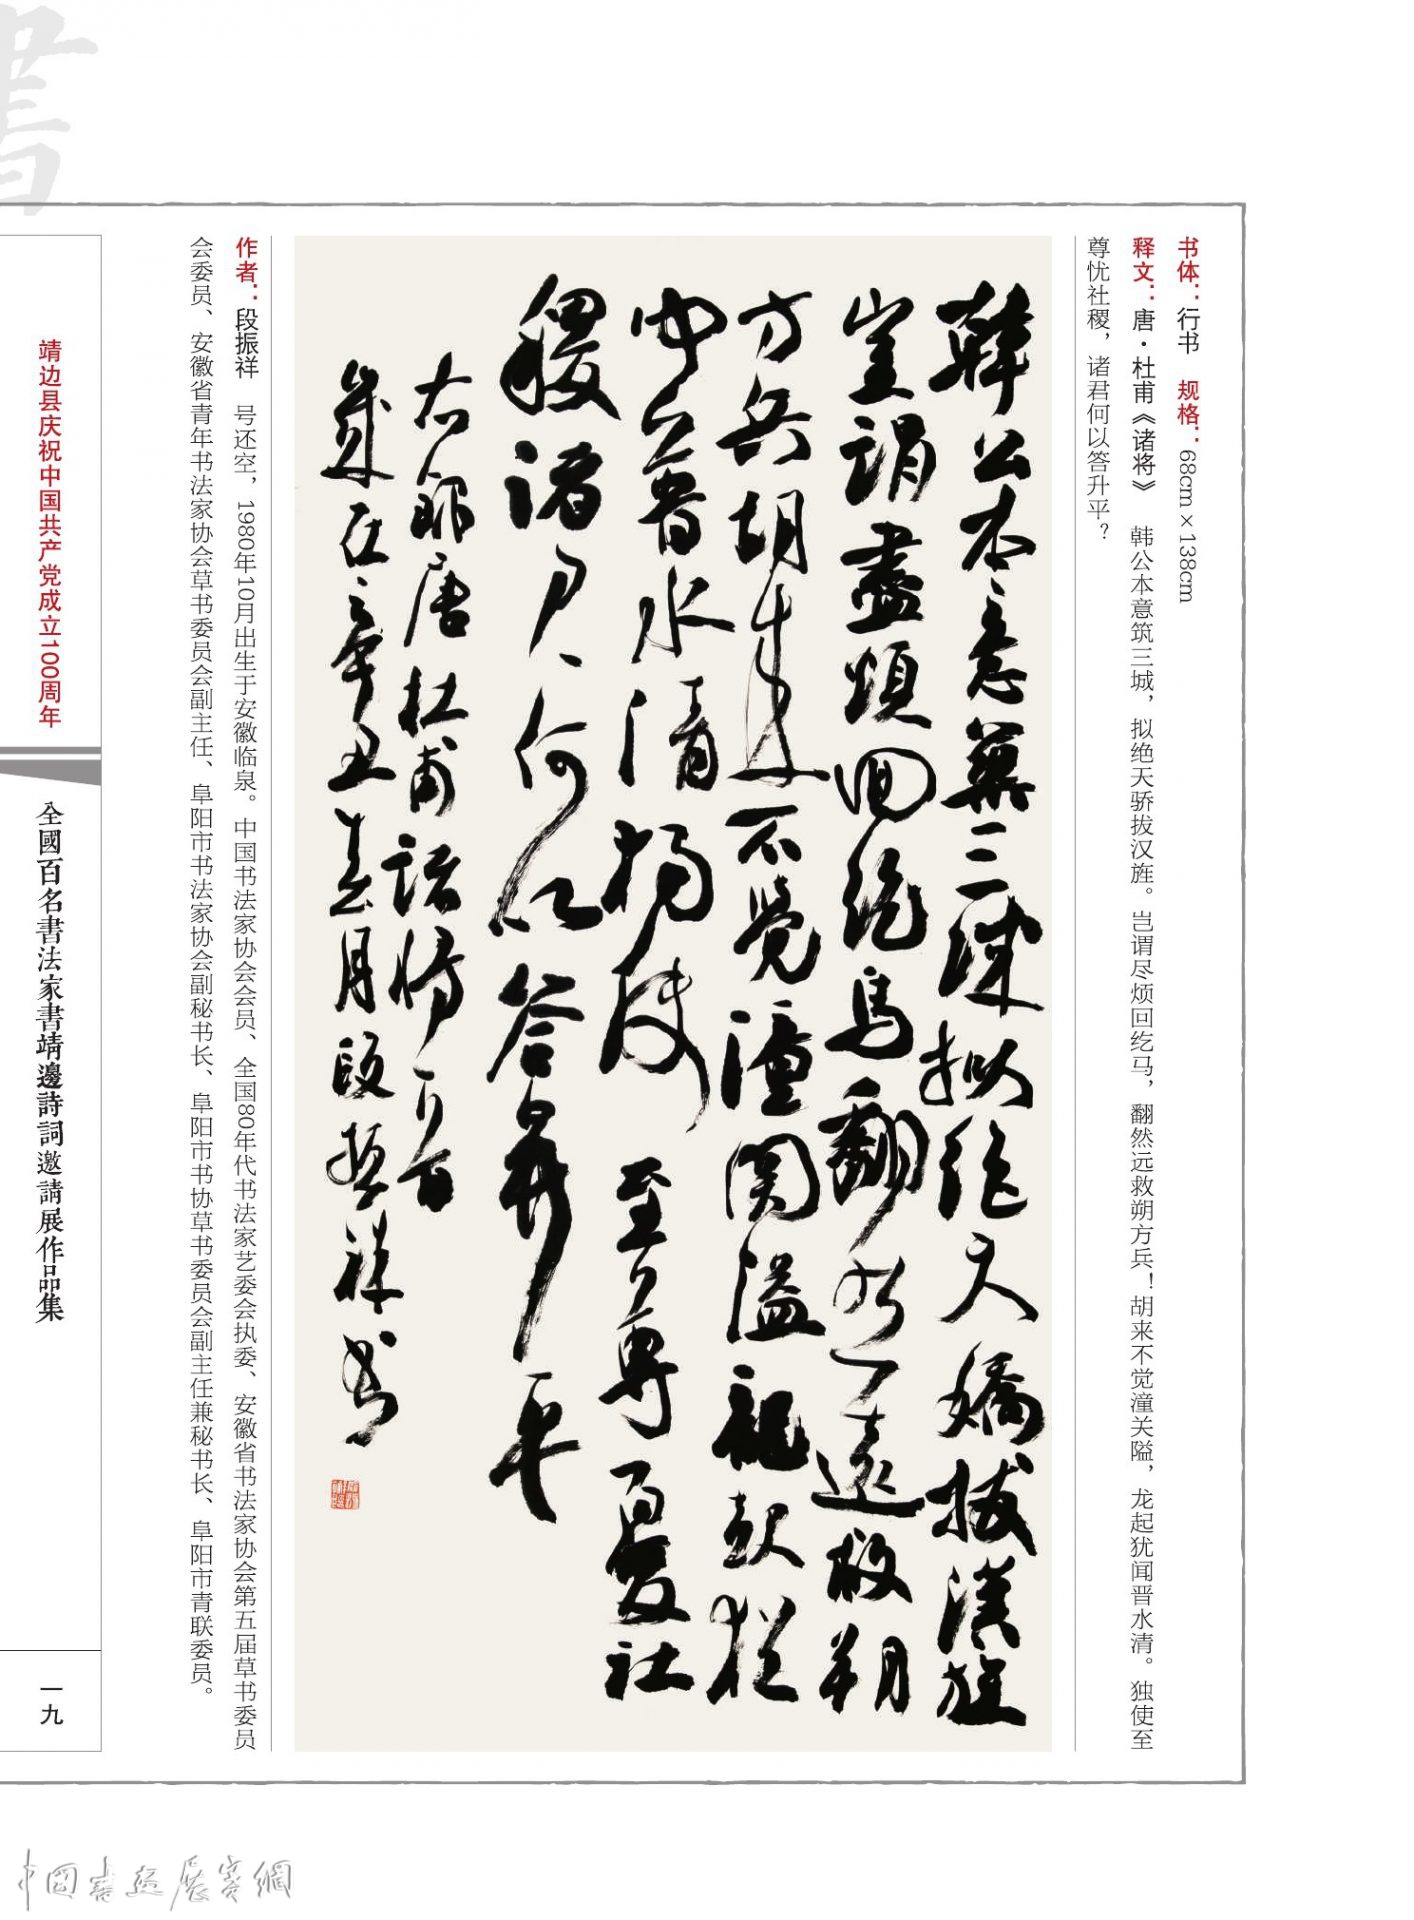 書
书体：行书 规格：68cm×138cm
释文：唐·杜甫《诸将》 韩公本意筑三城，拟绝天骄拔汉旌。岂谓尽烦回纥马，翻然远救朔方兵！胡来不觉潼关隘，龙起犹闻晋水清。独使至
尊忧社稷，诸君何以答升平？
韓公本意築三城擬絕天驕拔漢旌
豈謂盡煩回紇馬翻然遠救朔
方兵胡來不覺潼關隘龍起猶
聞晉水清獨使至尊憂社
稷諸君何以答昇平
右録唐杜甫諸將一首
歲在辛丑春月段振祥書
作者：段振祥 号还空，1980年10月出生于安徽临泉。中国书法家协会会员、全国80年代书法家艺委会执委、安徽省书法家协会第五届草书委员
会委员、安徽省青年书法家协会草书委员会副主任、阜阳市书法家协会副秘书长、阜阳市书协草书委员会副主任兼秘书长、阜阳市青联委员。
靖边县庆祝中国共产党成立100周年
全國百名書法家書靖邊詩詞邀請展作品集
一九
中國書畫展賽網